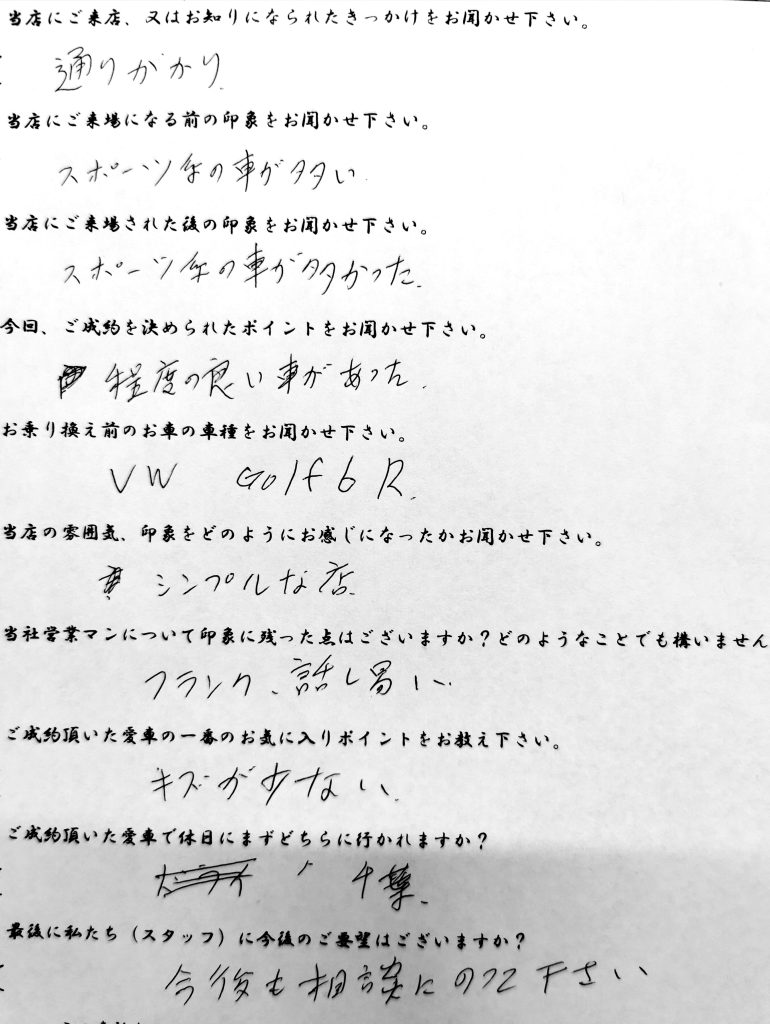 当店にご来店、又はお知りになられたきっかけをお聞かせ下さい。
通りがかり
当店にご来場になる前の印象をお聞かせ下さい。
スポーツ系の車が多い
当店にご来場された後の印象をお聞かせ下さい。
スポーツ系の車が多かった.
今回、ご成約を決められたポイントをお聞かせ下さい。
程度の良い車があった.
お乗り換え前のお車の車種をお聞かせ下さい。
VW Golf 6 R.
当店の雰囲気、印象をどのようにお感じになったかお聞かせ下さい。
シンプルな店.
当社営業マンについて印象に残った点はございますか?どのようなことでも構いません
フランク、話し易い.
ご成約頂いた愛車の一番のお気に入りポイントをお教え下さい。
キズが少ない.
ご成約頂いた愛車で休日にまずどちらに行かれますか?
千葉.
最後に私たち(スタッフ)に今後のご要望はございますか?
今後も相談にのって下さい